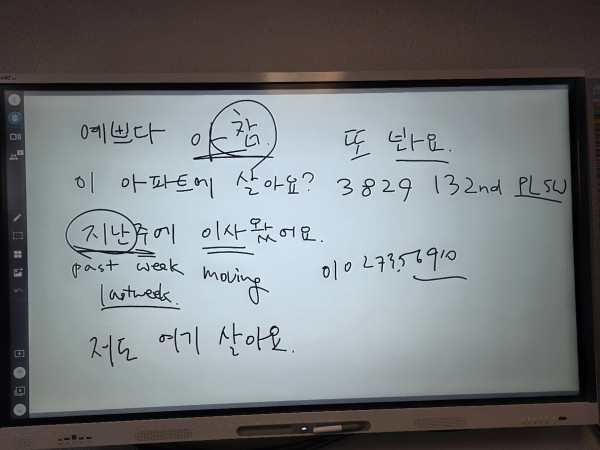 예쁘다 아 참.
또 봐요.
이 아파트에 살아요? 3829 132nd PL SW
지난주에 이사왔어요.
past week moving
last week.
010 2735 6910
저도 여기 살아요.